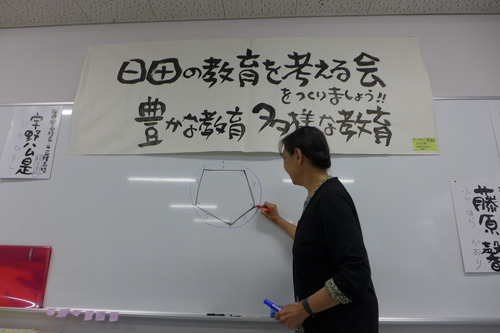 日田の教育を考える会
をつくりましょう!!
豊かな教育 多様な教育
宇野公是
藤原馨